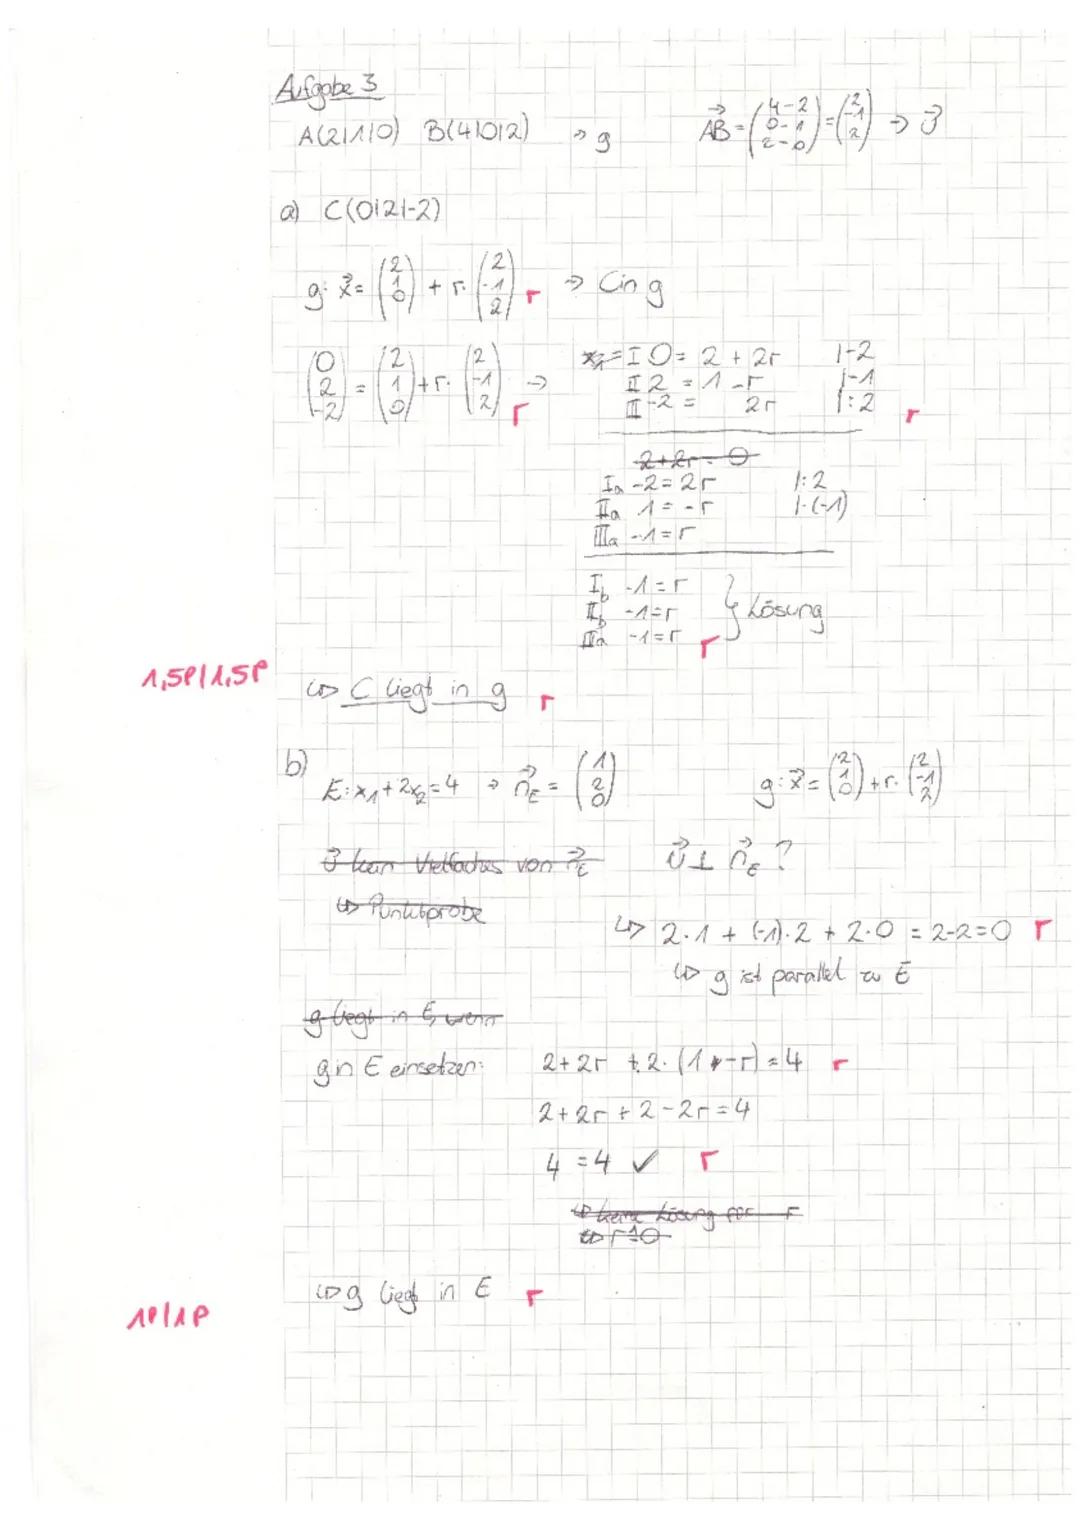 Aufgabe 3
A(2|1|0) B(4|0|2) → g $\vec{AB} = \begin{pmatrix} 4-2 \\ 0-1 \\ 2-0 \end{pmatrix} = \begin{pmatrix} 2 \\ -1 \\ 2 \end{pmatrix} → \vec{v}$
a) C(0|2|-2)
$g: \vec{x} = \begin{pmatrix} 2 \\ 1 \\ 0 \end{pmatrix} + r \cdot \begin{pmatrix} 2 \\ -1 \\ 2 \end{pmatrix}$ r → C in g
$\begin{pmatrix} 0 \\ 2 \\ -2 \end{pmatrix} = \begin{pmatrix} 2 \\ 1 \\ 0 \end{pmatrix} + r \cdot \begin{pmatrix} 2 \\ -1 \\ 2 \end{pmatrix}$ → r
~~x₁=~~ I 0 = 2 + 2r |-2
II 2 = 1 - r |-1
III -2 = 2r |:2 r
~~2+2r = 0~~
Ia -2 = 2r |:2
IIa 1 = -r |·(-1)
IIIa -1 = r
Ib -1 = r
IIb -1 = r } Lösung
IIIa -1 = r r
1,5P/1,5P
↳ C liegt in g r
b)
E: x₁ + 2x₂ = 4 → $\vec{n}_E = \begin{pmatrix} 1 \\ 2 \\ 0 \end{pmatrix}$ $g: \vec{x} = \begin{pmatrix} 2 \\ 1 \\ 0 \end{pmatrix} + r \cdot \begin{pmatrix} 2 \\ -1 \\ 2 \end{pmatrix}$
~~$\vec{v}$ kein Vielfaches von $\vec{n}_E$~~ $\vec{v} ⊥ \vec{n}_E$ ?
~~↳ Punktprobe~~
↳ 2·1 + (-1)·2 + 2·0 = 2-2=0 r
↳ g ist parallel zu E
~~g liegt in E, wenn~~
g in E einsetzen: 2 + 2r + 2·(1 -r) = 4 r
2 + 2r + 2 - 2r = 4
4 = 4 ✓ r
~~↳ keine Lösung für r~~
~~↳ r=0~~
↳ g liegt in E r
1P/1P